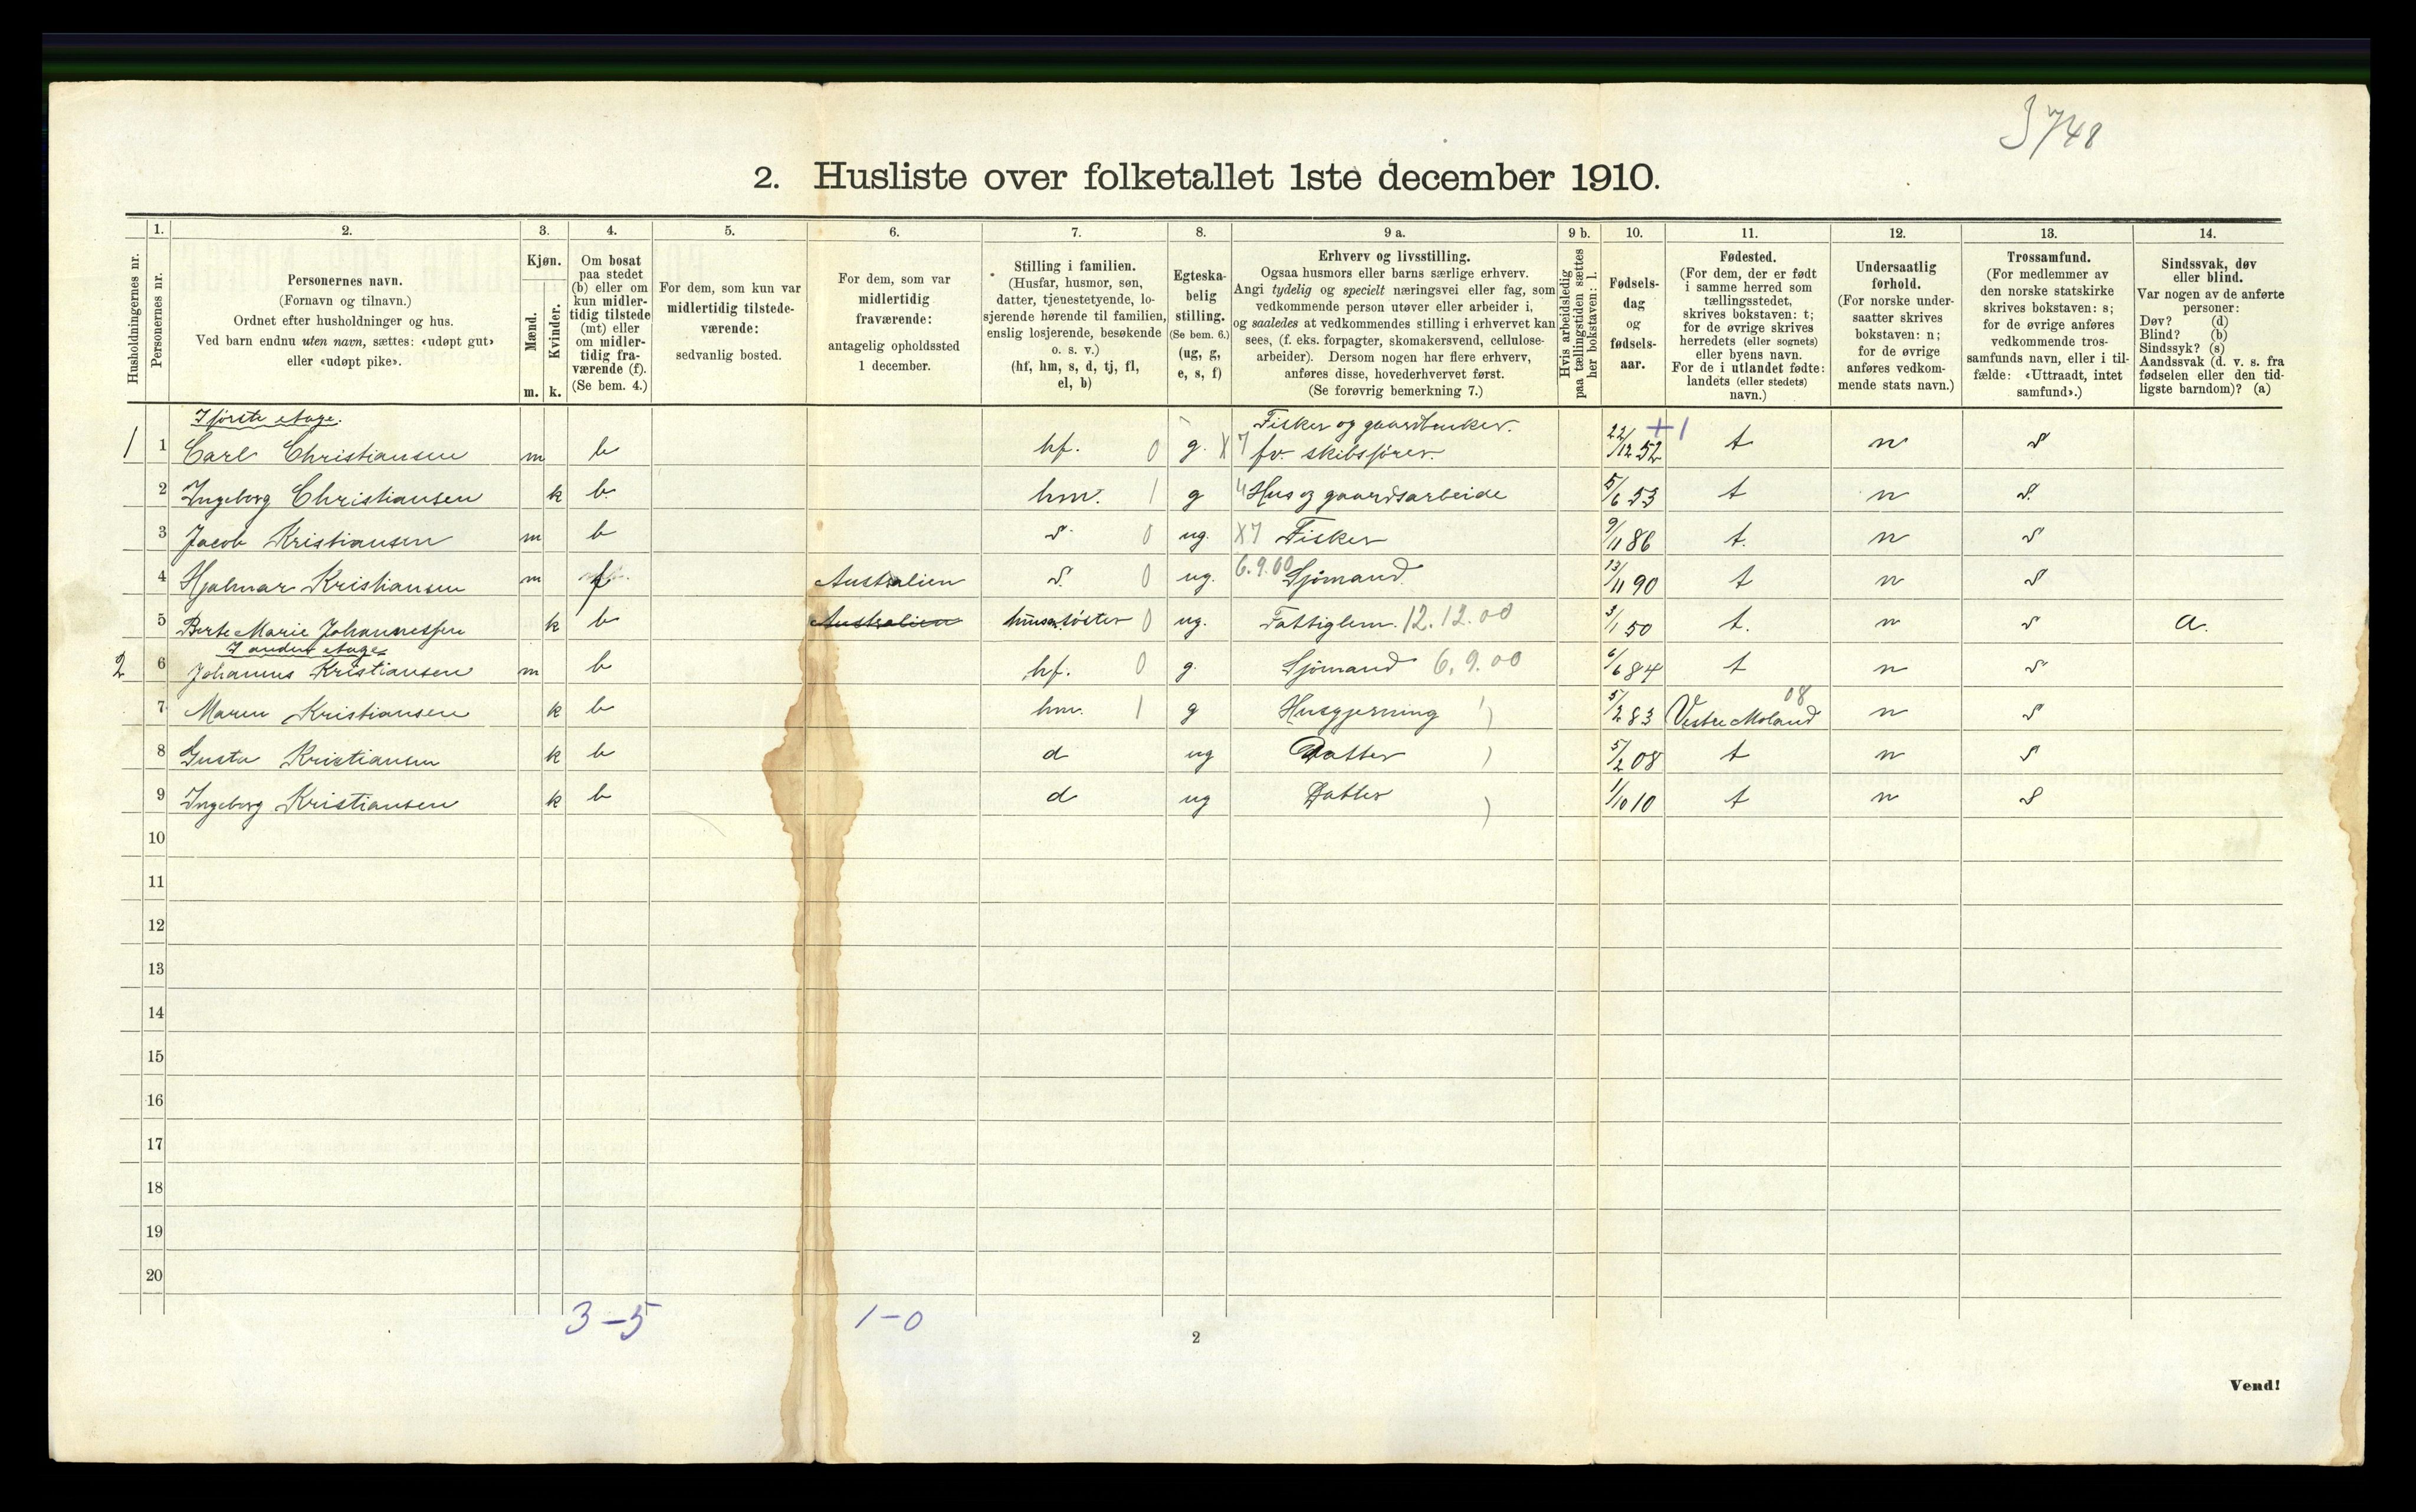 3748
2. Husliste over folketallet 1ste december 1910.
1. 2. 3. 4. 5. 6. 7. 8. 9 a. 9 b. 10. 11. 12. 13. 14.
Husholdningernes nr.
Personernes nr.
Personernes navn.
(Fornavn og tilnavn.)
Ordnet efter husholdninger og hus.
Ved barn endnu uten navn, sættes: «udøpt gut»
eller «udøpt pike».
Kjøn.
Mænd.
Kvinder.
m. k.
Om bosat
paa stedet
(b) eller om
kun midler-
tidig tilstede
(mt) eller
om midler-
tidig fra-
værende (f).
(Se bem. 4.)
For dem, som kun var
midlertidig tilstede-
værende:
sedvanlig bosted.
For dem, som var
midlertidig
fraværende:
antagelig opholdssted
1 december.
Stilling i familien.
(Husfar, husmor, søn,
datter, tjenestetyende, lo-
sjerende hørende til familien,
enslig losjerende, besøkende
o. s. v.)
(hf, hm, s, d, tj, fl,
el, b)
Egteska-
belig
stilling.
(Se bem. 6.)
(ug, g,
e, s, f)
Erhverv og livsstilling.
Ogsaa husmors eller barns særlige erhverv.
Angi tydelig og specielt næringsvei eller fag, som
vedkommende person utøver eller arbeider i,
og saaledes at vedkommendes stilling i erhvervet kan
sees, (f. eks. forpagter, skomakersvend, cellulose-
arbeider). Dersom nogen har flere erhverv,
anføres disse, hovederhvervet først.
(Se forøvrig bemerkning 7.)
Hvis arbeidsledig
paa tællingstiden sættes
her bokstaven: l.
Fødsels-
dag
og
fødsels-
aar.
Fødested.
(For dem, der er født
i samme herred som
tællingsstedet,
skrives bokstaven: t;
for de øvrige skrives
herredets (eller sognets)
eller byens navn.
For de i utlandet fødte:
landets (eller stedets)
navn.)
Undersaatlig
forhold.
(For norske under-
saatter skrives
bokstaven: n;
for de øvrige
anføres vedkom-
mende stats navn.)
Trossamfund.
(For medlemmer av
den norske statskirke
skrives bokstaven: s;
for de øvrige anføres
vedkommende tros-
samfunds navn, eller i til-
fælde: «Uttraadt, intet
samfund».)
Sindssvak, døv
eller blind.
Var nogen av de anførte
personer:
Døv? (d)
Blind? (b)
Sindssyk? (s)
Aandssvak (d. v. s. fra
fødselen eller den tid-
ligste barndom)? (a)
I første etage. Fisker og gaardbruker.
1 1 Carl Christiansen m b hf. 0 g. X7 fv. skibsfører. 22/12 52 +1 t n s
2 Ingeborg Christiansen k b hm. 1 g 4 Hus og gaardsarbeide 5/6 53 t n s.
3 Jacob Kristiansen m b s 0 ug. X7 Fisker 9/11 86 t. n s
4 Hjalmar Kristiansen m f Australien s. 0 ug. 6.9.00 Sjømand. 13/11 90 t n s
5 Berte Marie Johannessen k b Australien søster 0 ug. Fattiglem. 12.12.00 3/1 50 t. n s a.
I anden etage
2 6 Johannes Kristiansen m b hf. 0 g. Sjømand 6.9.00 6/6 84 t n s
7 Maren Kristiansen k b hm. 1 g Husgjerning 5/2 83 Vestre Moland 08 n s
8 Gusta Kristiansen k b d ug Datter 5/2 08 t n s
9 Ingeborg Kristiansen k b d ug Datter 1/10 10 t n s
10
11
12
13
14
15
16
17
18
19
20
3-5 1-0
2
Vend!